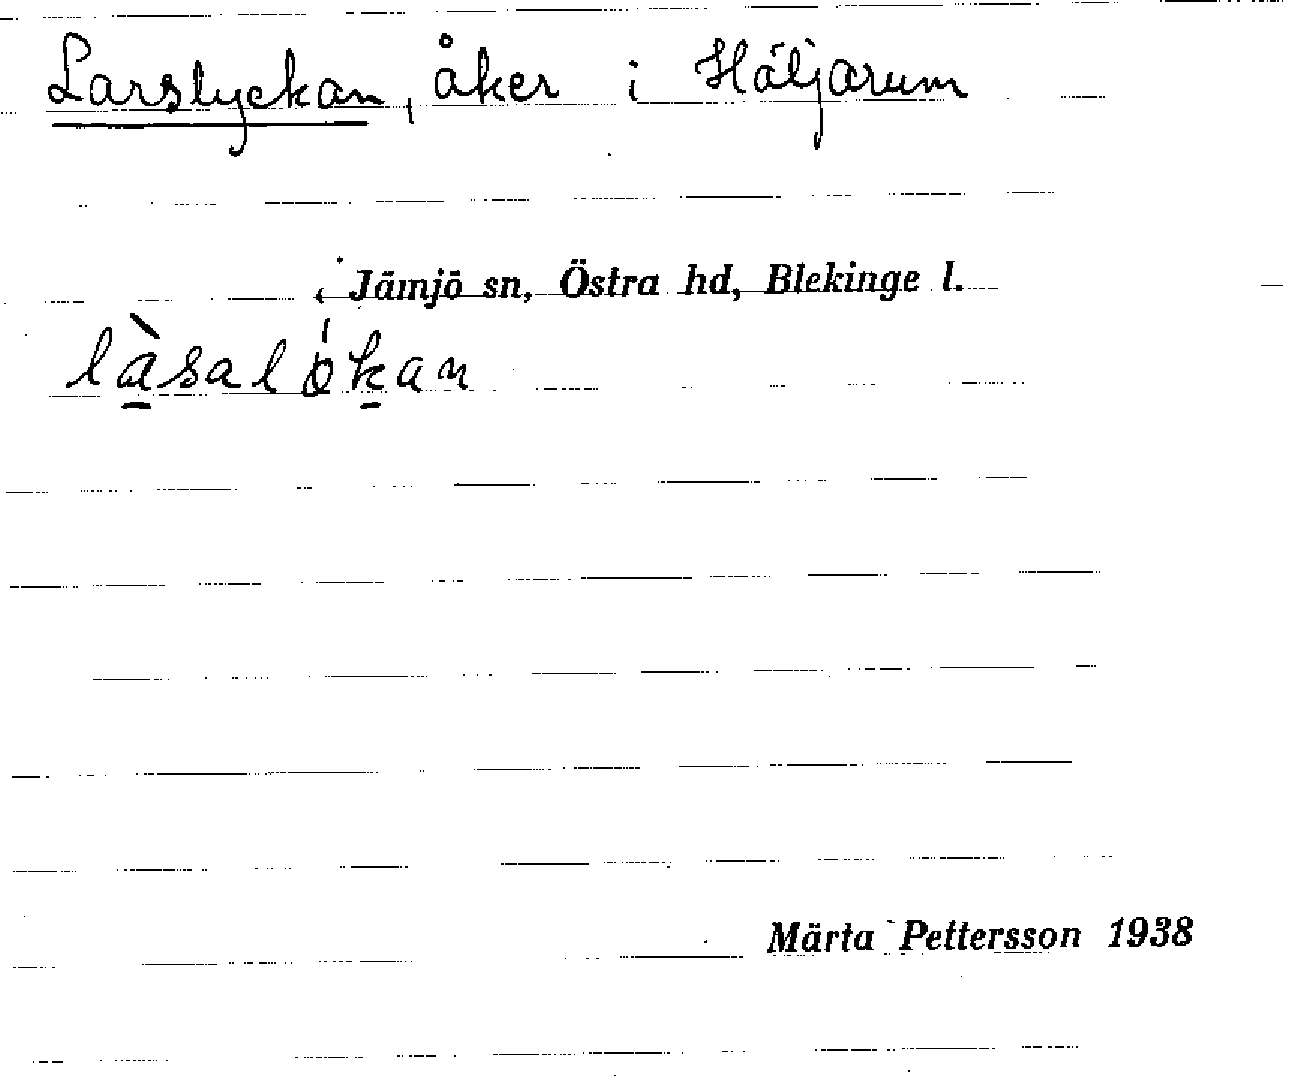 Larslyckan, åker i Häljarum
Jämjö sn, Östra hd, Blekinge l.
làsalókan
Märta Pettersson 1938